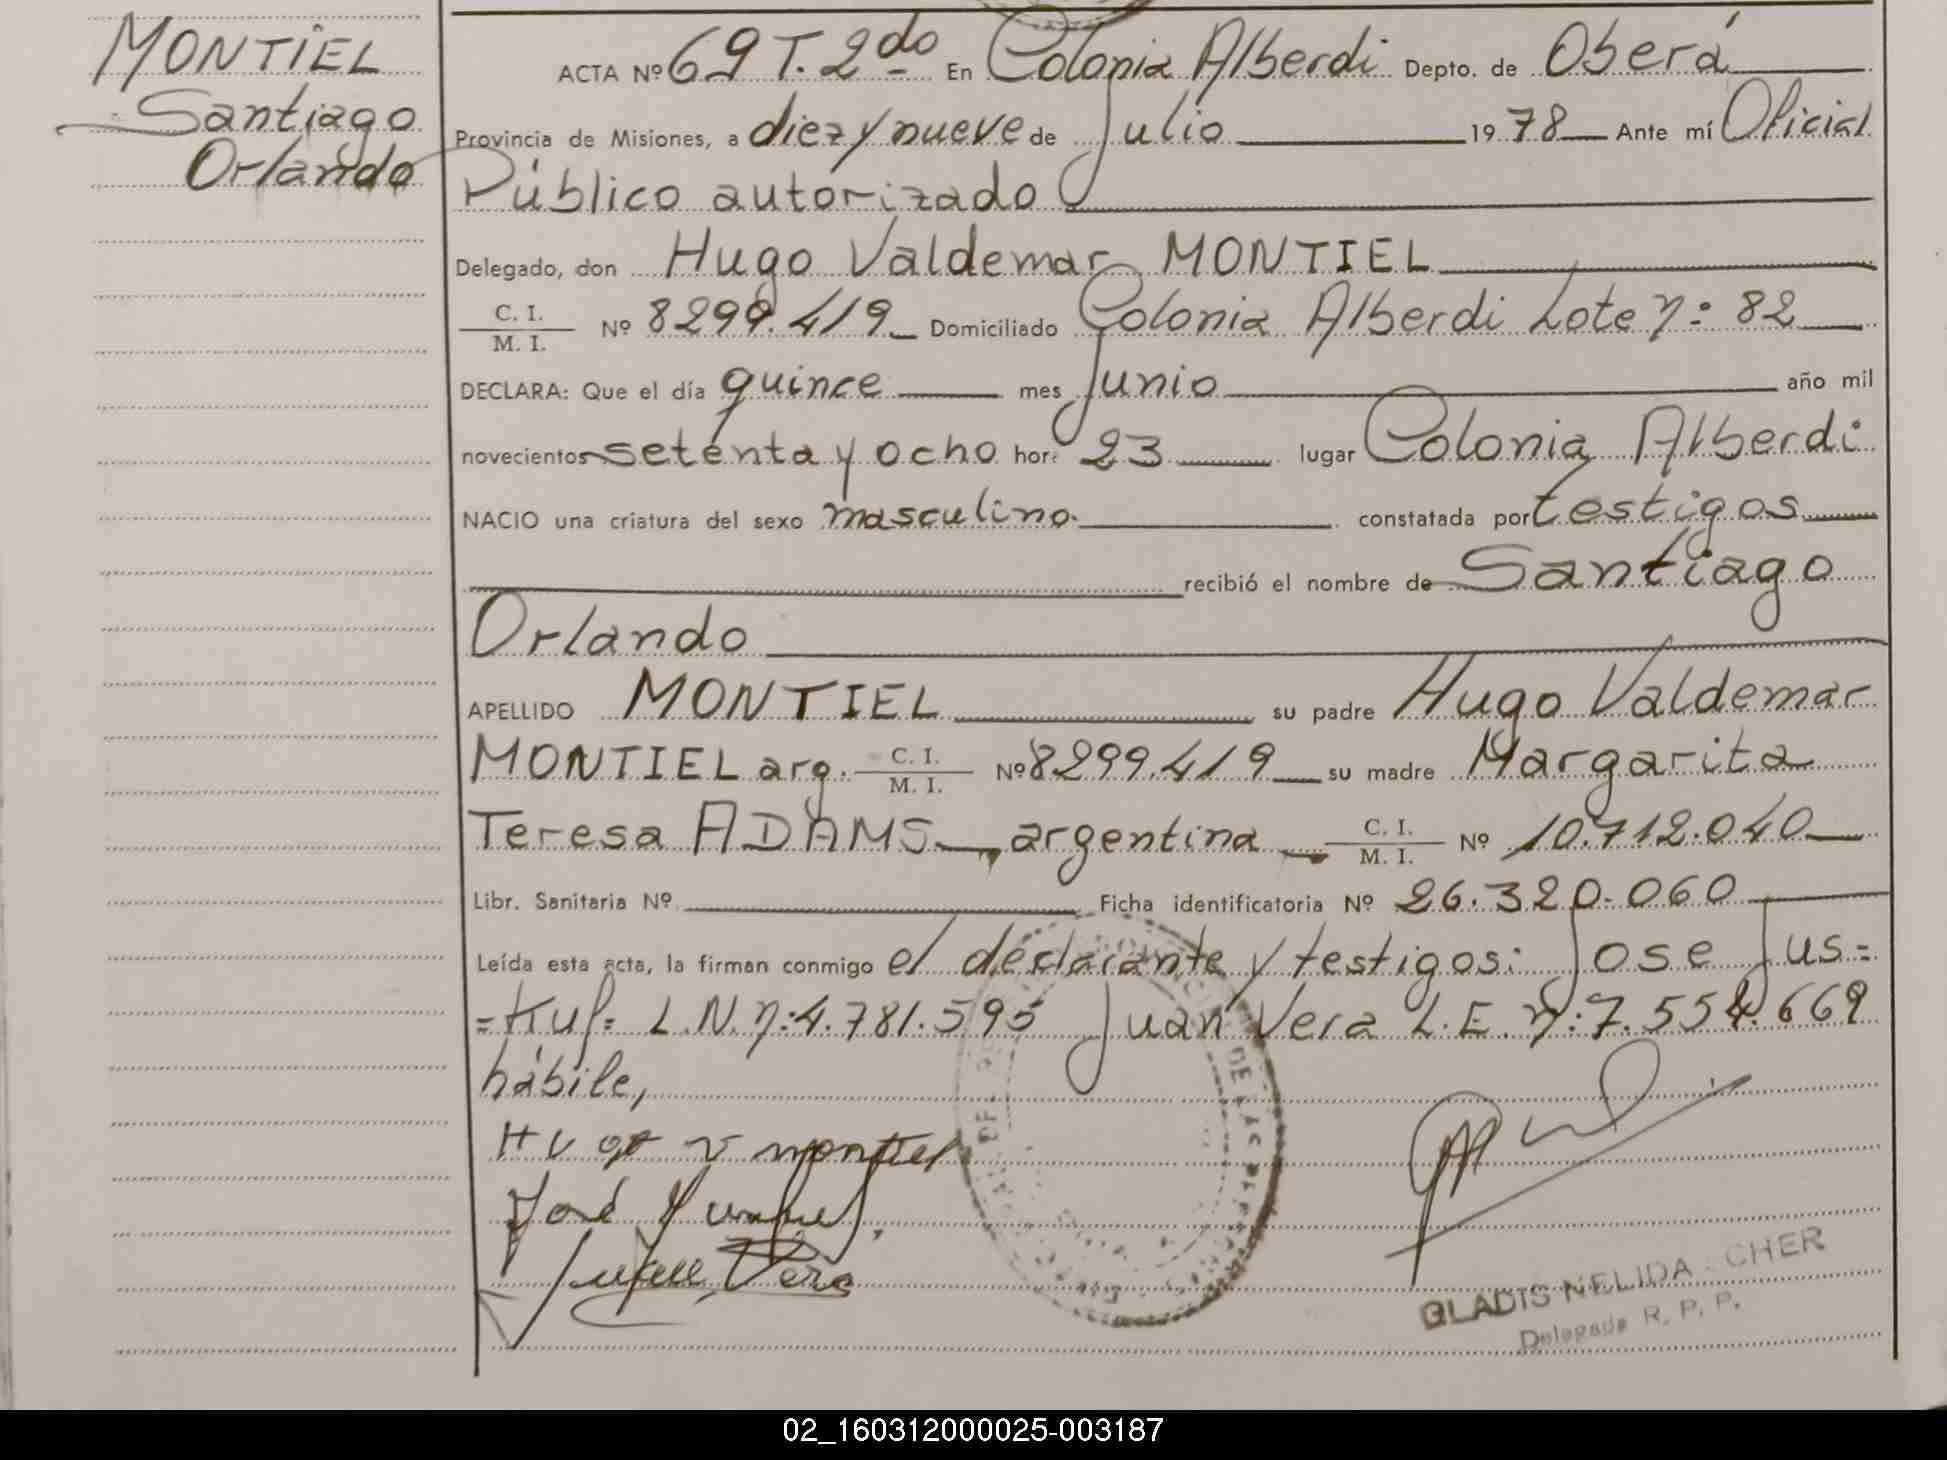 MONTIEL
Santiago
Orlando
ACTA Nº 69 T. 2do En Colonia Alberdi Depto. de Oberá
Provincia de Misiones, a diez y nueve de Julio 1978 Ante mí Oficial
Público autorizado
Delegado, don Hugo Valdemar MONTIEL
C. I.
M. I. Nº 8299.419 Domiciliado Colonia Alberdi Lote n: 82
DECLARA: Que el día quince mes Junio año mil
novecientos setenta y ocho hora 23 lugar Colonia Alberdi
NACIO una criatura del sexo masculino constatada por testigos
recibió el nombre de Santiago
Orlando
APELLIDO MONTIEL su padre Hugo Valdemar
MONTIEL arg. C. I. M. I. Nº 8299.419 su madre Margarita
Teresa ADAMS, argentina C. I. M. I. Nº 10.712.040
Libr. Sanitaria Nº Ficha identificatoria Nº 26.320.060
Leída esta acta, la firman conmigo el declarante y testigos: Jose Jus=
L.N. n:4.781.595 Juan Vera L.E. n:7.554.669
hábile,
Hugo V montiel
José
Juan Vera
GLADIS NELIDA CHER
Delegada R. P. P.
DE LAS
02_160312000025-003187